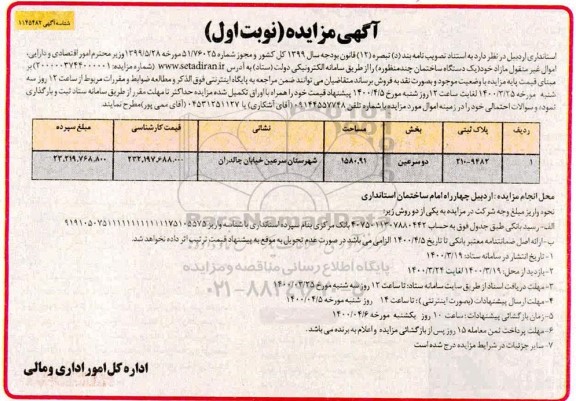 شناسه آگهی ۱۱۴۵۴۸۲
آگهی مزایده (نوبت اول)
استانداری اردبیل در نظر دارد به استناد تصویب نامه بند (د) تبصره (۱۲) قانون بودجه سال ۱۳۹۹ کل کشور و مجوز شماره ۵۱/۷۶۰۲۵ مورخه ۱۳۹۹/۵/۲۸ وزیر محترم امور اقتصادی و دارایی،
اموال غیر منقول مازاد خود (یک دستگاه ساختمان چند منظوره) را از طریق سامانه الکترونیکی دولت (ستاد) به آدرس www.setadiran.ir (شماره مزایده: ) بر
مبنای قیمت پایه مزایده با وضعیت موجود و بصورت نقد به فروش برساند متقاضیان می توانند ضمن مراجعه به پایگاه اینترنتی فوق الذکر و مطالعه ضوابط و مقررات مربوط از ساعت ۱۲ روز سه
شنبه مورخ ۱۴۰۰/۳/۲۵ لغایت ساعت ۱۲ روز شنبه مورخ ۱۴۰۰/۴/۵ پیشنهاد قیمت خود را همراه با اوراق تکمیل شده مزایده حداکثر تا مهلت مقرر از طریق سامانه ستاد ثبت و بارگذاری
نموده و سوالات احتمالی خود را در زمینه اموال مورد مزایده با شماره تلفن ۰۹۱۴۴۵۵۷۷۴۸ (آقای آشکاری) یا ۰۴۵۳۱۲۵۱۱۲۷ (آقای ممی پور) مطرح نمایند
ردیف پلاک ثبتی بخش مساحت نشانی قیمت کارشناسی مبلغ سپرده
۱ ۳۱۰-۹۴۸۲ دو سرعین ۱۵۸۰.۹۱ شهرستان سرعین خیابان چالدران ۲۳۲,۱۹۷,۶۸۸,۰۰۰ ۲۳,۲۱۹,۷۶۸,۸۰۰
محل انجام مزایده: اردبیل چهارراه امام ساختمان استانداری
نحوه واریز مبلغ وجه شرکت در مزایده به یکی از دو روش زیر:
الف- رسید بانکی طبق جدول فوق به حساب بانک مرکزی بنام سپرده استانداری با شناسه واریز
ب- ارائه اصل ضمانتنامه معتبر بانکی تا تاریخ ۱۴۰۰/۴/۵ الزامی می باشد در صورت عدم تحویل به موقع به پیشنهاد قیمت ترتیب اثر داده نخواهد شد.
۱- تاریخ انتشار در سامانه ستاد: ۱۴۰۰/۳/۱۹
۲- بازدید از محل: ۱۴۰۰/۳/۱۹ لغایت ۱۴۰۰/۳/۲۴
۳- مهلت دریافت اسناد از طریق سایت سامانه ستاد: تا ساعت ۱۲ روز سه شنبه مورخ ۱۴۰۰/۰۳/۲۵
۴- مهلت ارسال پیشنهادات (بصورت اینترنتی): تا ساعت ۱۴ روز شنبه مورخه ۱۴۰۰/۰۴/۵
۵- زمان بازگشائی پیشنهادات: ساعت ۱۰ روز یکشنبه مورخه ۱۴۰۰/۰۴/۶
۶- مهلت پرداخت ثمن معامله ۱۵ روز پس از بازگشائی مزایده و اعلام به برنده می باشد.
۷- سایر جزئیات در شرایط مزایده درج شده است
اداره کل امور اداری و مالی
پایگاه اطلاع رسانی مناقصه و مزایده